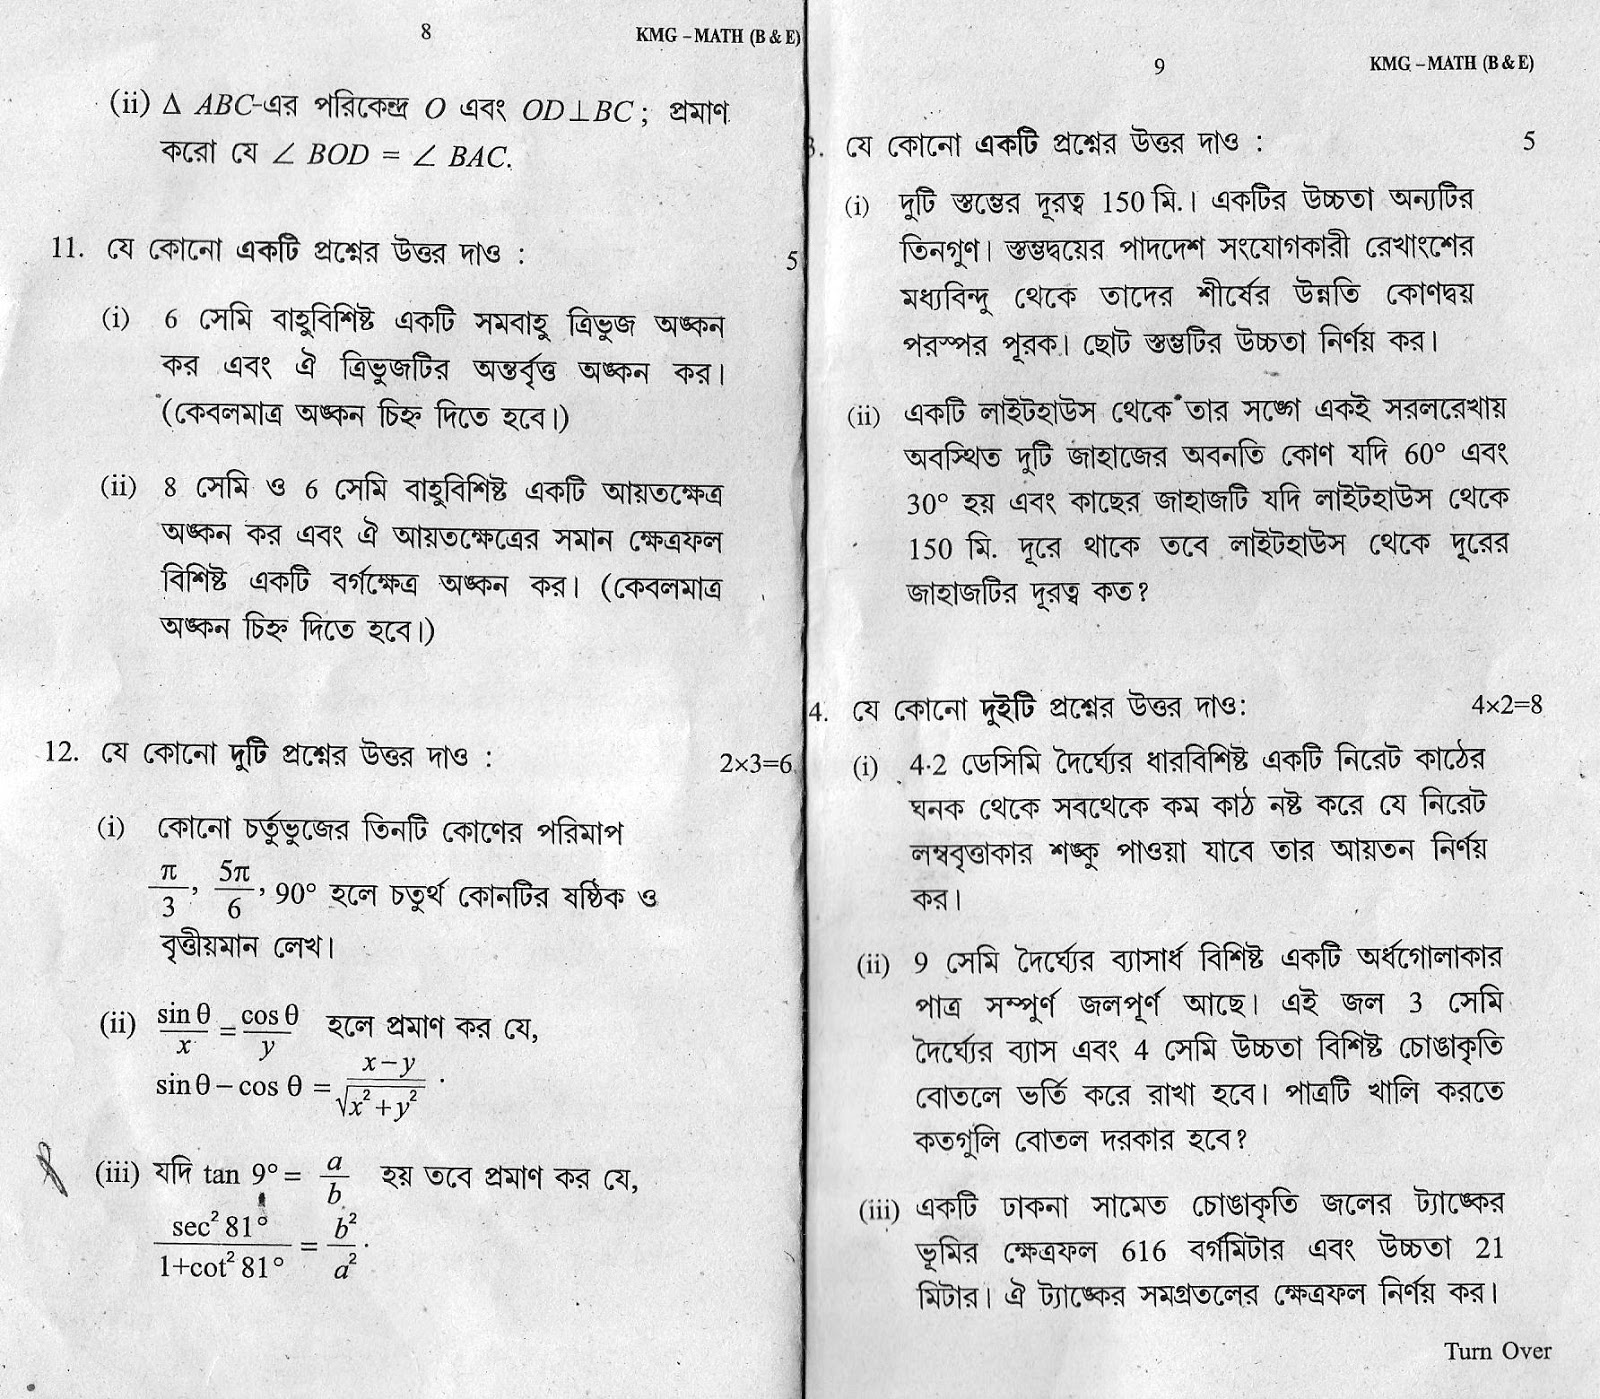 8
KMG – MATH (B & E)
(ii) Δ ABC-এর পরিকেন্দ্র O এবং OD⊥BC ; প্রমাণ
করো যে ∠ BOD = ∠ BAC.
11. যে কোনো একটি প্রশ্নের উত্তর দাও : 5
(i) 6 সেমি বাহুবিশিষ্ট একটি সমবাহু ত্রিভুজ অঙ্কন
কর এবং ঐ ত্রিভুজটির অন্তর্বৃত্ত অঙ্কন কর।
(কেবলমাত্র অঙ্কন চিহ্ন দিতে হবে।)
(ii) 8 সেমি ও 6 সেমি বাহুবিশিষ্ট একটি আয়তক্ষেত্র
অঙ্কন কর এবং ঐ আয়তক্ষেত্রের সমান ক্ষেত্রফল
বিশিষ্ট একটি বর্গক্ষেত্র অঙ্কন কর। (কেবলমাত্র
অঙ্কন চিহ্ন দিতে হবে।)
12. যে কোনো দুটি প্রশ্নের উত্তর দাও : 2×3=6
(i) কোনো চর্তুভুজের তিনটি কোণের পরিমাপ
π/3, 5π/6, 90° হলে চতুর্থ কোনটির ষষ্ঠিক ও
বৃত্তীয়মান লেখ।
(ii) sin θ/x = cos θ/y হলে প্রমাণ কর যে,
sin θ – cos θ = x – y/√x² + y² .
(iii) যদি tan 9° = a/b হয় তবে প্রমাণ কর যে,
sec² 81°/1+cot² 81° = b²/a².
9
KMG – MATH (B & E)
3. যে কোনো একটি প্রশ্নের উত্তর দাও : 5
(i) দুটি স্তম্ভের দূরত্ব 150 মি.। একটির উচ্চতা অন্যটির
তিনগুণ। স্তম্ভদ্বয়ের পাদদেশ সংযোগকারী রেখাংশের
মধ্যবিন্দু থেকে তাদের শীর্ষের উন্নতি কোণদ্বয়
পরস্পর পূরক। ছোট স্তম্ভটির উচ্চতা নির্ণয় কর।
(ii) একটি লাইটহাউস থেকে তার সঙ্গে একই সরলরেখায়
অবস্থিত দুটি জাহাজের অবনতি কোণ যদি 60° এবং
30° হয় এবং কাছের জাহাজটি যদি লাইটহাউস থেকে
150 মি. দূরে থাকে তবে লাইটহাউস থেকে দূরের
জাহাজটির দূরত্ব কত?
4. যে কোনো দুইটি প্রশ্নের উত্তর দাও: 4×2=8
(i) 4·2 ডেসিমি দৈর্ঘ্যের ধারবিশিষ্ট একটি নিরেট কাঠের
ঘনক থেকে সবথেকে কম কাঠ নষ্ট করে যে নিরেট
লম্ববৃত্তাকার শঙ্কু পাওয়া যাবে তার আয়তন নির্ণয়
কর।
(ii) 9 সেমি দৈর্ঘ্যের ব্যাসার্ধ বিশিষ্ট একটি অর্ধগোলাকার
পাত্র সম্পুর্ণ জলপূর্ণ আছে। এই জল 3 সেমি
দৈর্ঘ্যের ব্যাস এবং 4 সেমি উচ্চতা বিশিষ্ট চোঙাকৃতি
বোতলে ভর্তি করে রাখা হবে। পাত্রটি খালি করতে
কতগুলি বোতল দরকার হবে?
(iii) একটি ঢাকনা সামেত চোঙাকৃতি জলের ট্যাঙ্কের
ভূমির ক্ষেত্রফল 616 বর্গমিটার এবং উচ্চতা 21
মিটার। ঐ ট্যাঙ্কের সমগ্রতলের ক্ষেত্রফল নির্ণয় কর।
Turn Over